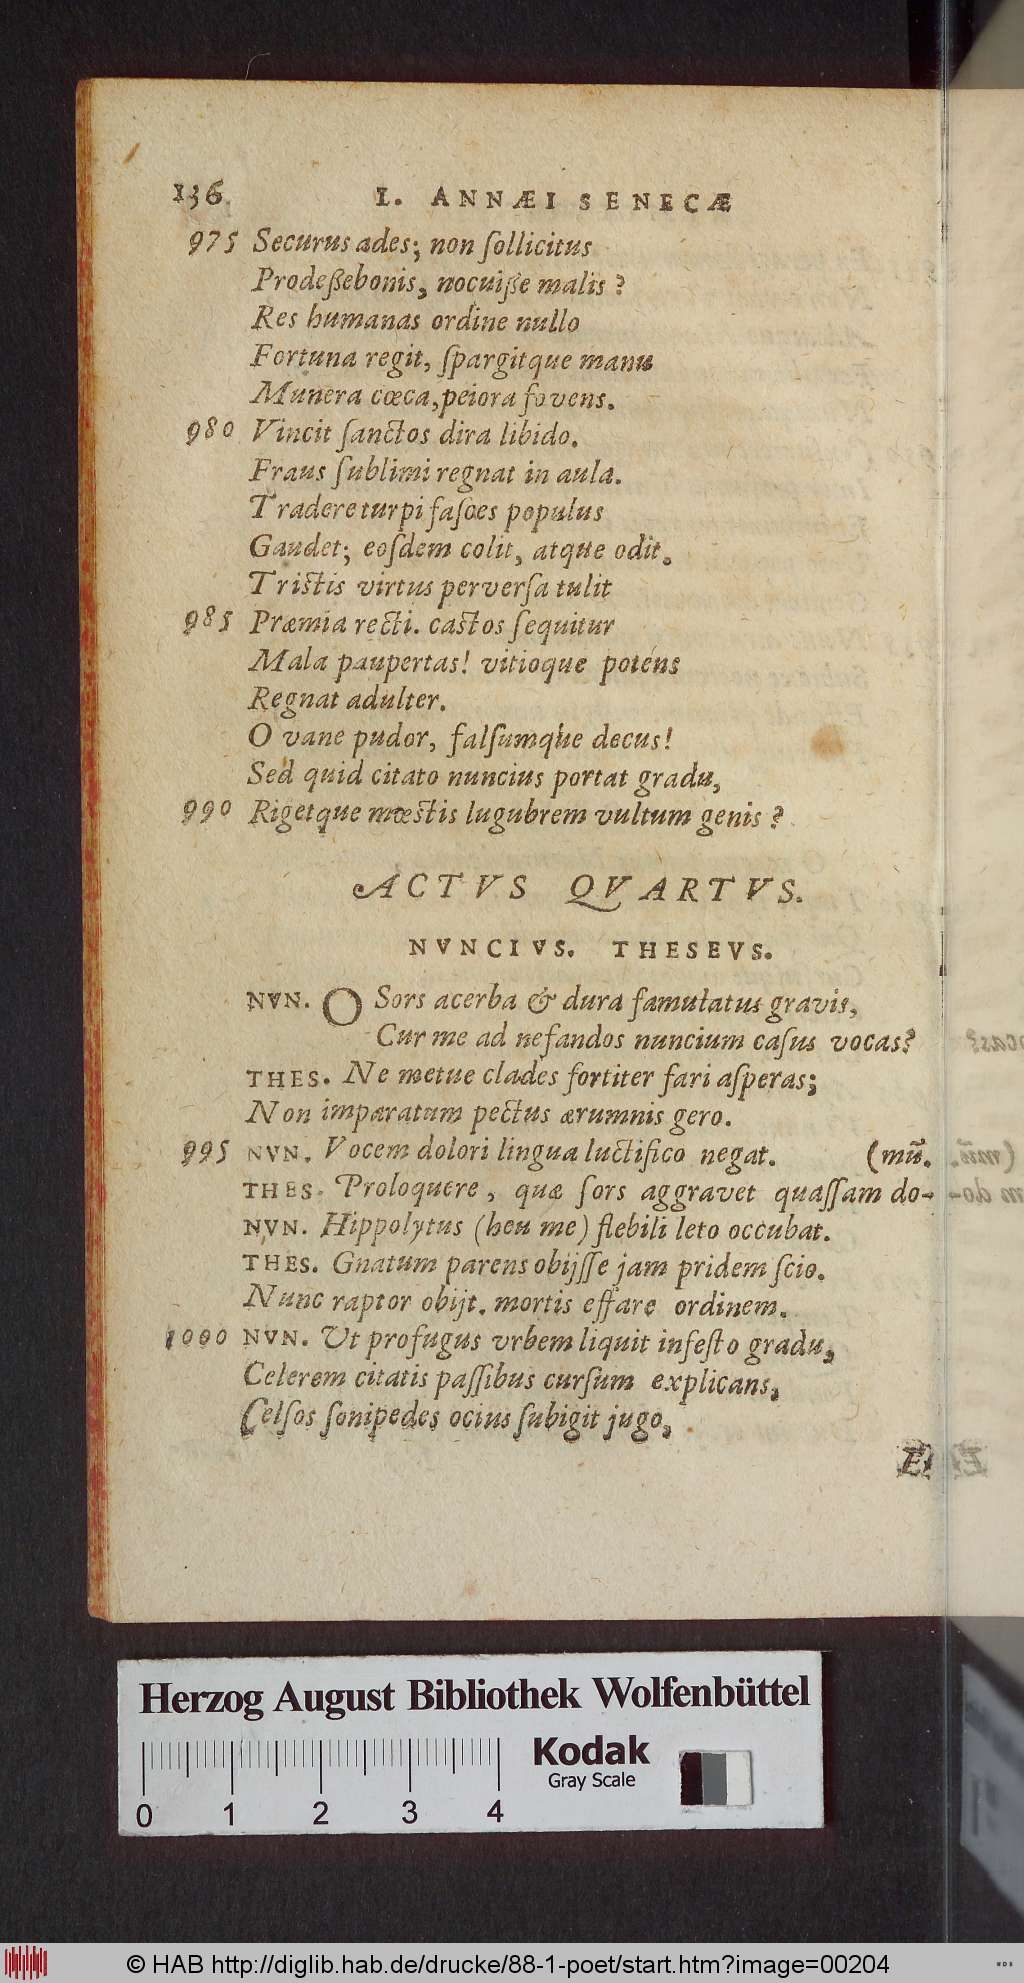 136 I. ANNÆI SENECÆ
975 Securus ades; non ſollicitus
Prodeßebonis, nocuiße malis?
Res humanas ordine nullo
Fortuna regit, ſpargitque manu
Munera cœca, peiora fovens.
980 Vincit ſanctos dira libido.
Fraus ſublimi regnat in aula.
Tradere turpi faſces populus
Gaudet; eoſdem colit, atque odit.
Triſtis virtus perverſa tulit
985 Præmia recti. caſtos ſequitur
Mala paupertas! vitioque potens
Regnat adulter.
O vane pudor, falſumque decus!
Sed quid citato nuncius portat gradu,
990 Rigetque mœſtis lugubrem vultum genis?
ACTVS QVARTVS.
NVNCIVS. THESEVS.
NVN. O Sors acerba & dura famulatus gravis,
Cur me ad nefandos nuncium caſus vocas?
THES. Ne metue clades fortiter fari aſperas;
Non imparatum pectus ærumnis gero.
995 NVN. Vocem dolori lingua luctifico negat. (mũ.
THES. Proloquere, quæ ſors aggravet quaſſam do-
NVN. Hippolytus (heu me) flebili leto occubat.
THES. Gnatum parens obijſſe jam pridem ſcio.
Nunc raptor obijt. mortis effare ordinem.
1000 NVN. Ut profugus vrbem liquit infeſto gradu,
Celerem citatis paſſibus curſum explicans,
Celſos ſonipedes ocius ſubigit jugo,
Et
Herzog August Bibliothek Wolfenbüttel
Kodak
Gray Scale
0 1 2 3 4
© HAB http://diglib.hab.de/drucke/88-1-poet/start.htm?image=00204